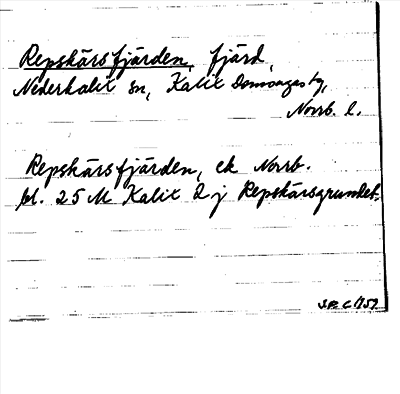 Repskärsfjärden, fjärd,
Nederkalix sn, Kalix Domsagas tg,
Norrb. l.
Repskärsfjärden, ek Norrb.
bl. 25 M Kalix 2 j Repskärsgrundet.